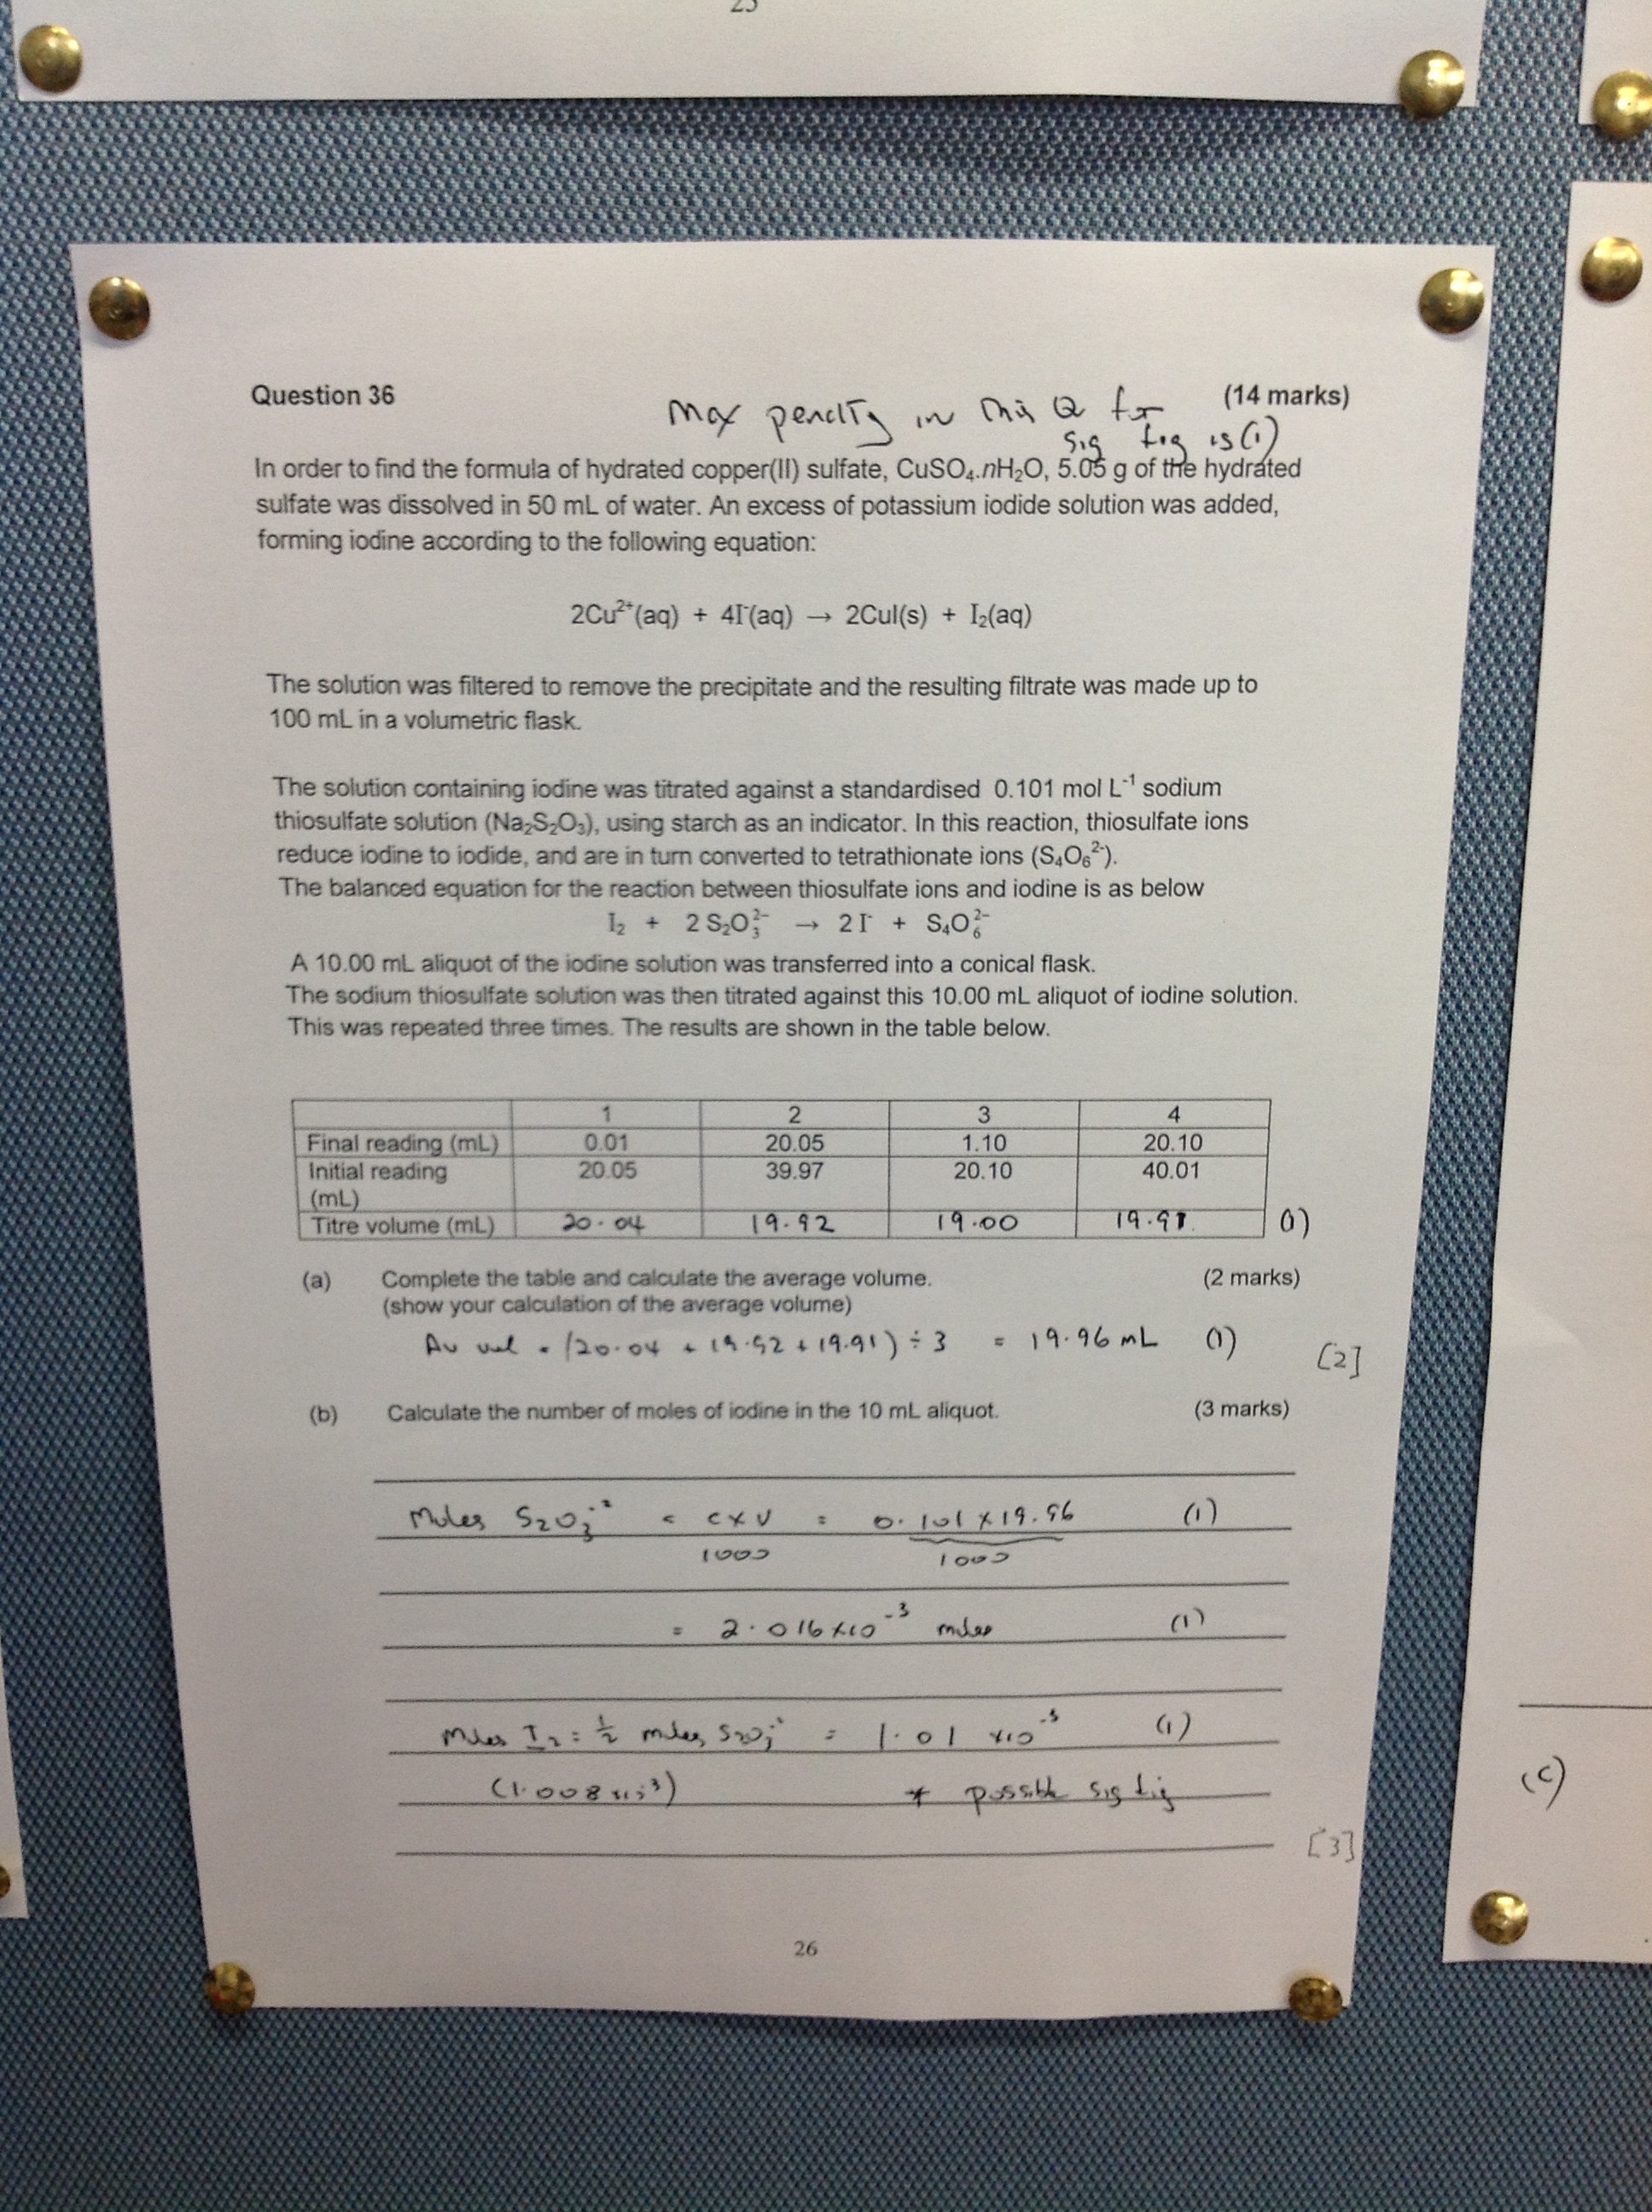 25
Question 36
(14 marks)
Max penalty in this Q for
sig fig is (1)
In order to find the formula of hydrated copper(II) sulfate, CuSO₄.nH₂O, 5.05 g of the hydrated
sulfate was dissolved in 50 mL of water. An excess of potassium iodide solution was added,
forming iodine according to the following equation:
2Cu²⁺(aq) + 4I⁻(aq) → 2CuI(s) + I₂(aq)
The solution was filtered to remove the precipitate and the resulting filtrate was made up to
100 mL in a volumetric flask.
The solution containing iodine was titrated against a standardised 0.101 mol L⁻¹ sodium
thiosulfate solution (Na₂S₂O₃), using starch as an indicator. In this reaction, thiosulfate ions
reduce iodine to iodide, and are in turn converted to tetrathionate ions (S₄O₆²⁻).
The balanced equation for the reaction between thiosulfate ions and iodine is as below
I₂ + 2 S₂O₃²⁻ → 2 I⁻ + S₄O₆²⁻
A 10.00 mL aliquot of the iodine solution was transferred into a conical flask.
The sodium thiosulfate solution was then titrated against this 10.00 mL aliquot of iodine solution.
This was repeated three times. The results are shown in the table below.
1 2 3 4
Final reading (mL) 0.01 20.05 1.10 20.10
Initial reading
(mL) 20.05 39.97 20.10 40.01
Titre volume (mL) 20.04 19.92 19.00 19.91 (1)
(a) Complete the table and calculate the average volume. (2 marks)
(show your calculation of the average volume)
Av vol = (20.04 + 19.92 + 19.91) ÷ 3 = 19.96 mL (1)
[2]
(b) Calculate the number of moles of iodine in the 10 mL aliquot. (3 marks)
Moles S₂O₃⁻² = c x v = 0.101 x 19.96 (1)
1000 1000
= 2.016 x 10⁻³ moles (1)
Moles I₂ = ½ moles S₂O₃⁻² = 1.01 x10⁻³ (1)
(1.008 x10⁻³) * possible sig fig
[3]
26
(c)